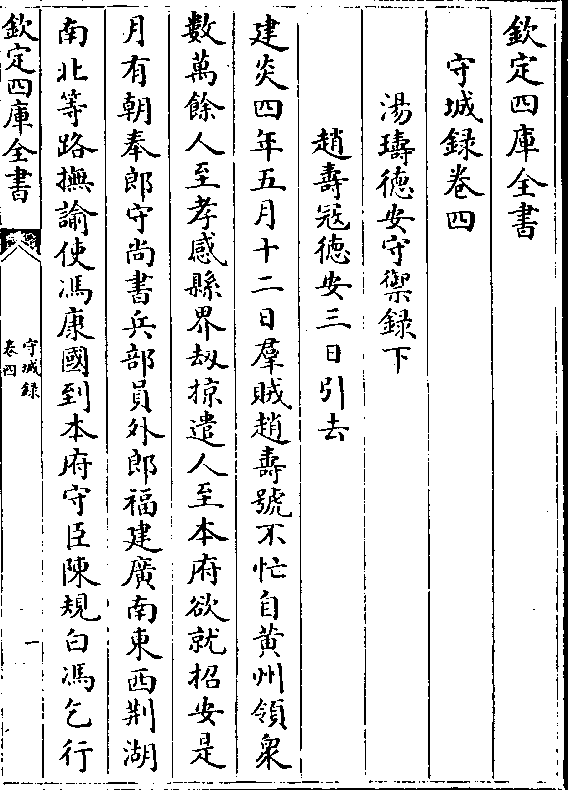 欽定四庫全書
守城録卷四
湯璹德安守禦録下
趙壽冦德安三日引去
建炎四年五月十二日羣賊趙壽號不忙自黄州領衆
數萬餘人至孝感縣界刼掠遣人至本府欲就招安是
月有朝奉郎守尚書兵部員外郎福建廣南東西荆湖
南北等路撫諭使馮康國到本府守臣陳規白馮乞行
欽定四庫全書
守城録
卷四
一